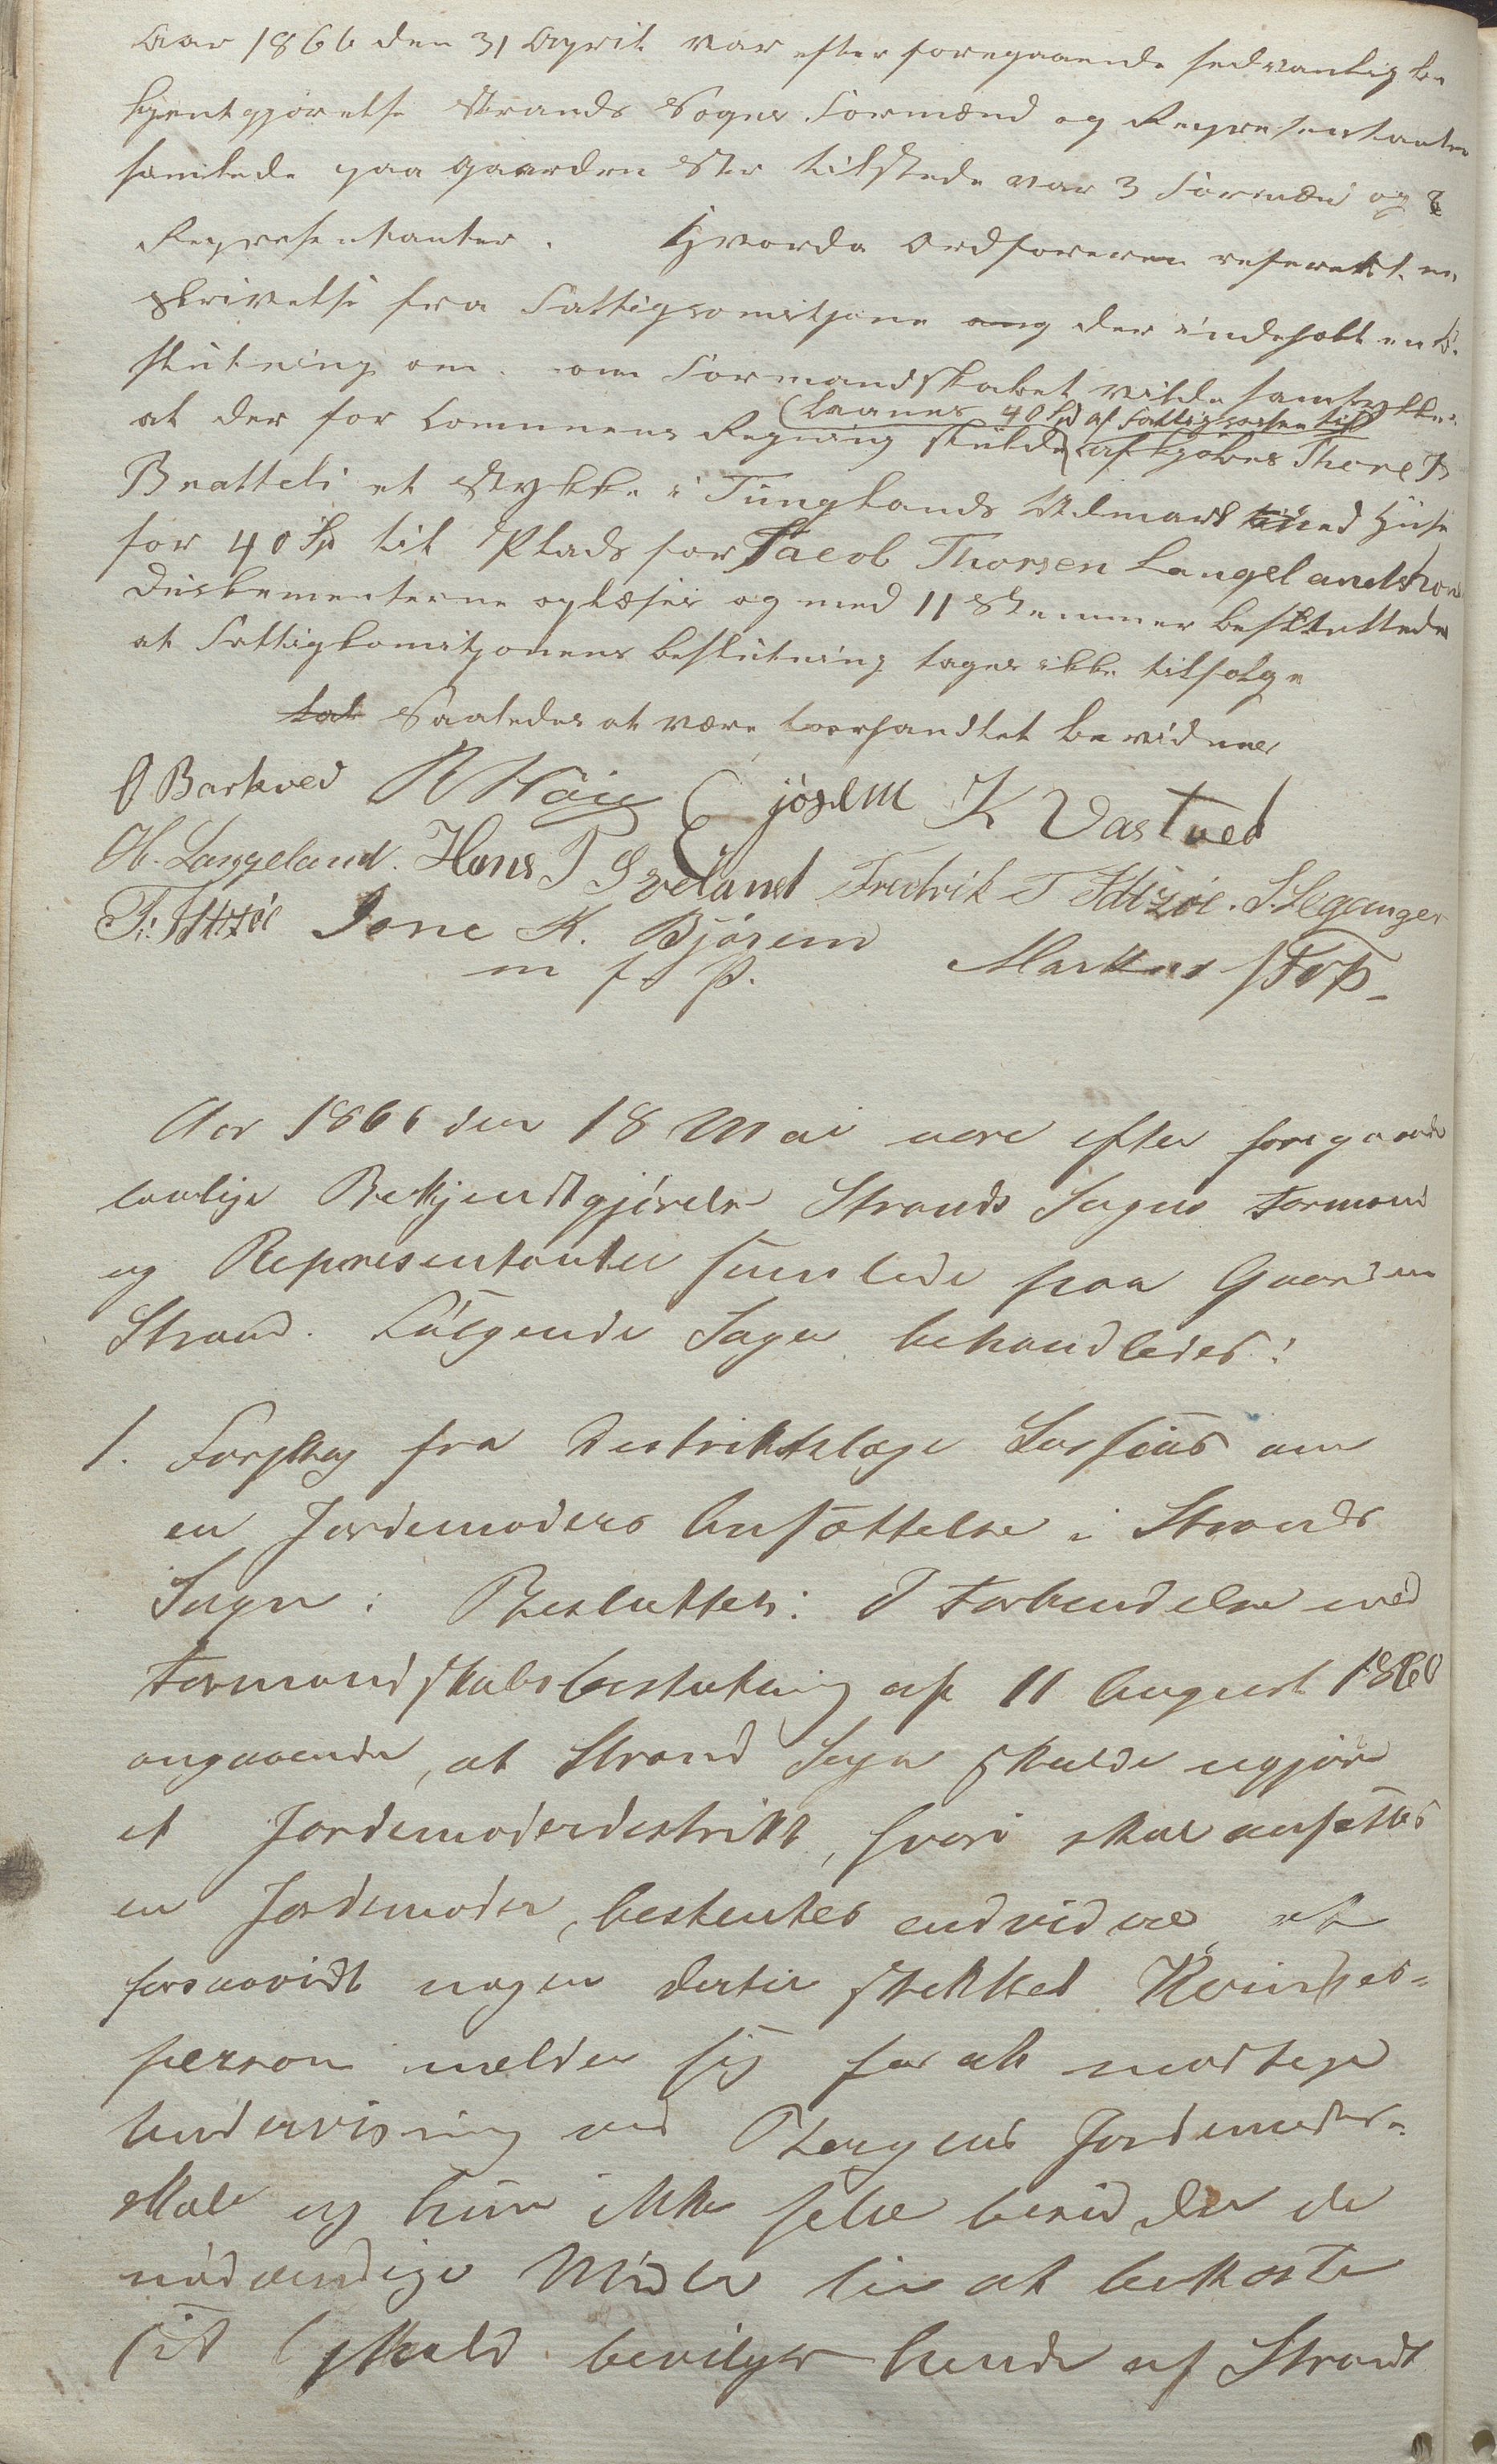 Aar 1866 den 31 April var efter foregaaende sedvanlig be
kjentgjørelse Strands Sogns Formænd og Representanter
samlede paa Gaarden Sto tilstede var 3 Formæn og 8
Representanter. Hvorda Ordføreren refereret en
skrivelse fra Fattigcomitsjone ang der indeholt en be
slutning om. om Formandskabet vilde samtykke i
(laanes 40 Spd af Fattigcassen til)
at der for Comunens Regning skulde afkjøbes Thore P
Bratteli et Stykke i Tunglands Udmark med Huse
for 40 Sp til Plads for Jacob Thorsen Langelands
Dockumenterne oplæses og med 11 Stemmer besluttedes
at Fattigkomitsjonens beslutning tages ikke tilfølge
Saaledes at være forhandlet bevidner
O Barkved R Høie E jøsem K Vastved
H. Langeland. Hans T Sveland Fredrik T Idtzøe. S. Heganger
F. Idtzøe Jone K. Bjørem
m f P. Markus
Aar 1866 den 18 Mai vare efter foregaaende
lovlige Bekjendtgjørelse Strands Sogns Formænd
og Representanter samlede paa Gaarden
Strand. Følgende Sager behandledes:
1. Forslag fra Destriktslæge om
en Jordemoders Ansættelse i Strands
Sogn: Besluttet: I Forbindelse med
Formandskabsbeslutning af 11 August 1860
angaaende, at Strand Sogn skulde ugjøre
et Jordemoderdestrikt, hvori skal ansættes
en Jordemoder, beslutes endvidere, at
forsaavidt nogen dertil skikket Kvindes-
person melder sig for at modtage
Undervisning ved Bergens Jordemoder-
skole og hun ikke selv besidder de
nødvendige Midler til at bekoste
sit Ophold bevilges hende af Strands